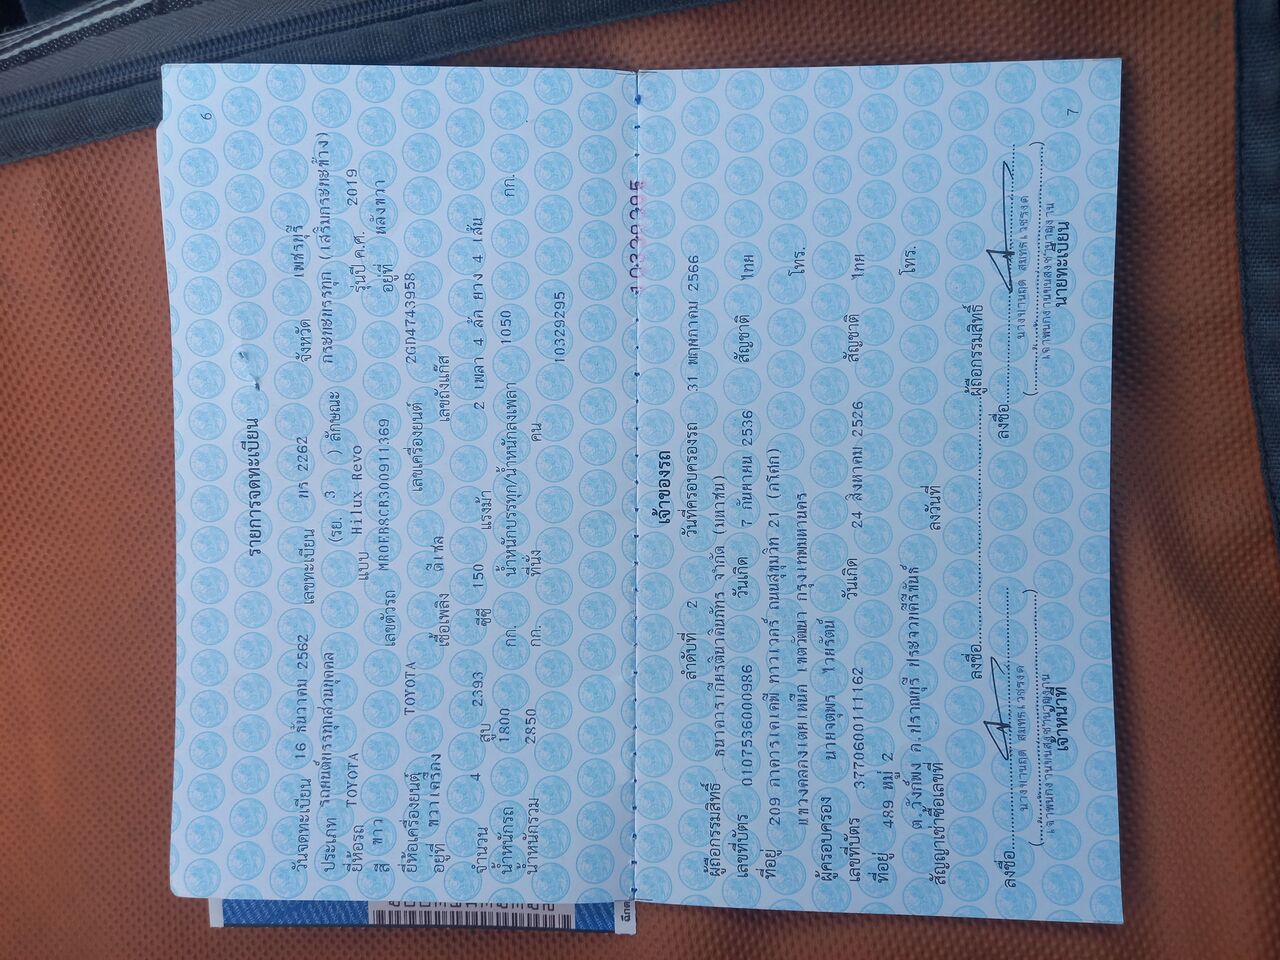 6
รายการจดทะเบียน
วันจดทะเบียน 16 ธันวาคม 2562 เลขทะเบียน ทร 2262 จังหวัด เพชรบุรี
ประเภท รถยนต์บรรทุกส่วนบุคคล (รย. 3 ) ลักษณะ กระบะบรรทุก (เสริมกระบะข้าง)
ยี่ห้อรถ TOYOTA แบบ Hilux Revo รุ่นปี ค.ศ. 2019
สี ขาว เลขตัวรถ MR0ER8CB300911369 อยู่ที่ หลังขวา
ยี่ห้อเครื่องยนต์ TOYOTA เลขเครื่องยนต์ 2GD4743958
อยู่ที่ ขวาเครื่อง เชื้อเพลิง ดีเซล เลขถังแก๊ส
จำนวน 4 สูบ 2393 ซีซี 150 แรงม้า 2 เพลา 4 ล้อ ยาง 4 เส้น
น้ำหนักรถ 1800 กก. น้ำหนักบรรทุก/น้ำหนักลงเพลา 1050 กก.
น้ำหนักรวม 2850 กก. ที่นั่ง คน
10329295
10329295
เจ้าของรถ
ลำดับที่ 2 วันที่ครอบครองรถ 31 พฤษภาคม 2566
ผู้ถือกรรมสิทธิ์ ธนาคารเกียรตินาคินภัทร จำกัด (มหาชน)
เลขที่บัตร 0107536000986 วันเกิด 7 กันยายน 2536 สัญชาติ ไทย
ที่อยู่ 209 อาคารเคเคพี ทาวเวอร์ ถนนสุขุมวิท 21 (อโศก)
แขวงคลองเตยเหนือ เขตวัฒนา กรุงเทพมหานคร โทร.
ผู้ครอบครอง นายจตุพร ไวยรัตน์
เลขที่บัตร 3770600111162 วันเกิด 24 สิงหาคม 2526 สัญชาติ ไทย
ที่อยู่ 489 หมู่ 2
ต.วังก์พง อ.ปราณบุรี ประจวบคีรีขันธ์ โทร.
สัญญาเช่าซื้อเลขที่ ลงวันที่
ลงชื่อ ผู้ถือกรรมสิทธิ์
ลงชื่อ ลงชื่อ
เจ้าพนักงานขนส่งชำนาญงาน เจ้าพนักงานขนส่งชำนาญงาน
เจ้าหน้าที่ นายทะเบียน
7